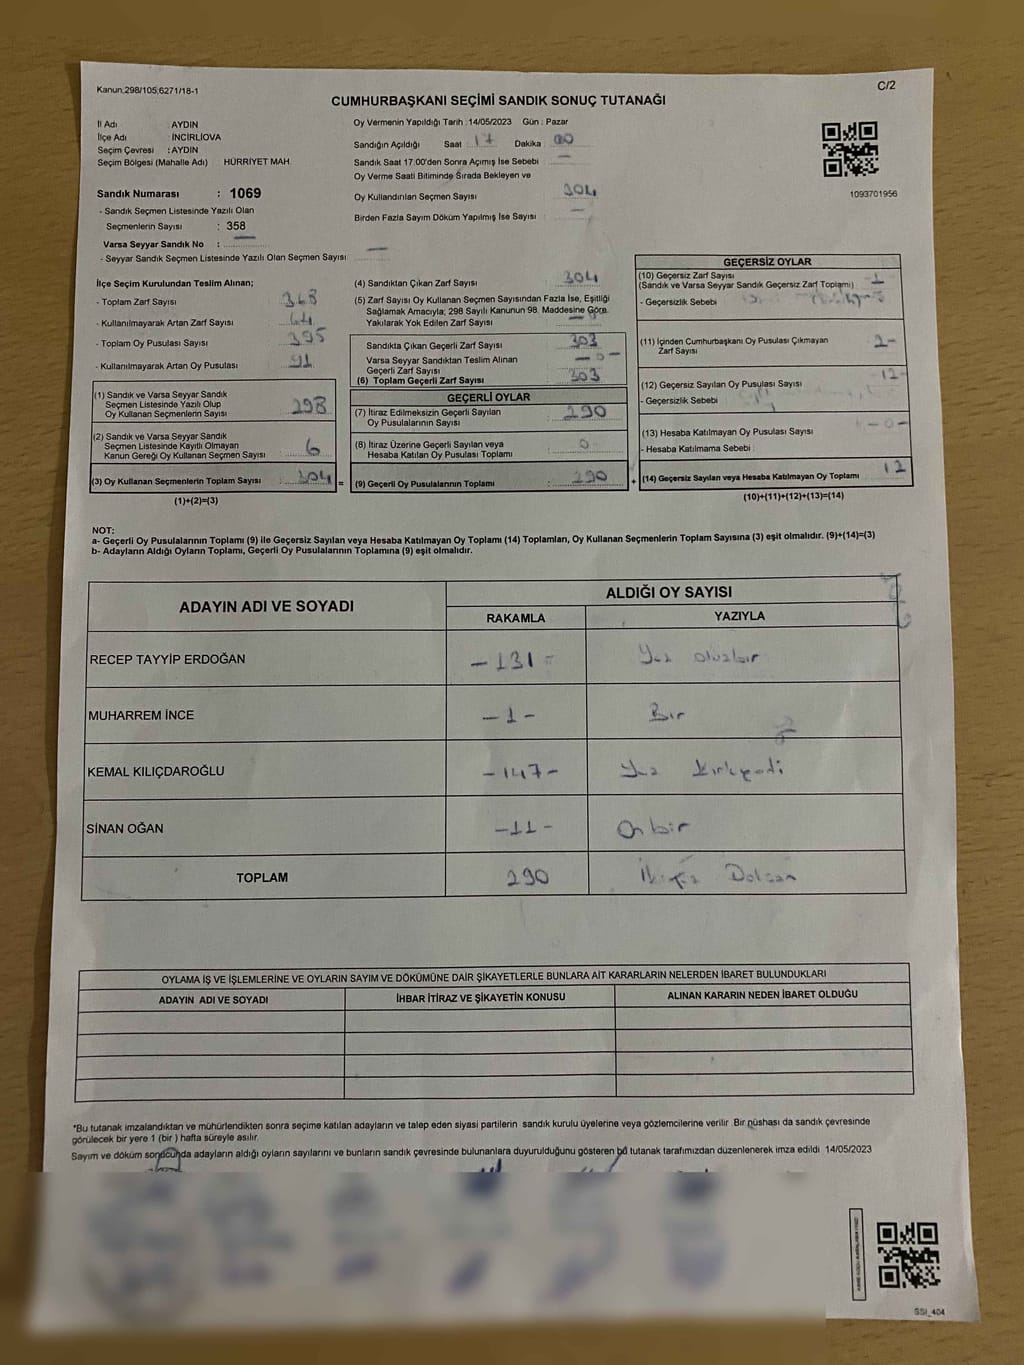 Kanun,298/105,6271/18-1
C/2
CUMHURBAŞKANI SEÇİMİ SANDIK SONUÇ TUTANAĞI
İl Adı AYDIN
İlçe Adı : İNCİRLİOVA
Seçim Çevresi : AYDIN
Seçim Bölgesi (Mahalle Adı) HÜRRİYET MAH.
Sandık Numarası : 1069
- Sandık Seçmen Listesinde Yazılı Olan
Seçmenlerin Sayısı : 358
Varsa Seyyar Sandık No : —
- Seyyar Sandık Seçmen Listesinde Yazılı Olan Seçmen Sayısı —
Oy Vermenin Yapıldığı Tarih : 14/05/2023 Gün : Pazar
Sandığın Açıldığı Saat : 17 Dakika : 00
Sandık Saat 17.00'den Sonra Açımış İse Sebebi —
Oy Verme Saati Bitiminde Sırada Bekleyen ve
Oy Kullandırılan Seçmen Sayısı 304
Birden Fazla Sayım Döküm Yapılmış İse Sayısı —
1093701956
İlçe Seçim Kurulundan Teslim Alınan;
- Toplam Zarf Sayısı 368
- Kullanılmayarak Artan Zarf Sayısı 64
- Toplam Oy Pusulası Sayısı 395
- Kullanılmayarak Artan Oy Pusulası 91
(1) Sandık ve Varsa Seyyar Sandık
Seçmen Listesinde Yazılı Olup
Oy Kullanan Seçmenlerin Sayısı 298
(2) Sandık ve Varsa Seyyar Sandık
Seçmen Listesinde Kayıtlı Olmayan
Kanun Gereği Oy Kullanan Seçmen Sayısı 6
(3) Oy Kullanan Seçmenlerin Toplam Sayısı 304 =
(1)+(2)=(3)
(4) Sandıktan Çıkan Zarf Sayısı 304
(5) Zarf Sayısı Oy Kullanan Seçmen Sayısından Fazla İse, Eşitliği
Sağlamak Amacıyla; 298 Sayılı Kanunun 98. Maddesine Göre
Yakılarak Yok Edilen Zarf Sayısı
Sandıkta Çıkan Geçerli Zarf Sayısı 303
Varsa Seyyar Sandıktan Teslim Alınan
Geçerli Zarf Sayısı -0-
(6) Toplam Geçerli Zarf Sayısı 303
GEÇERLİ OYLAR
(7) İtiraz Edilmeksizin Geçerli Sayılan
Oy Pusulalarının Sayısı 290
(8) İtiraz Üzerine Geçerli Sayılan veya
Hesaba Katılan Oy Pusulası Toplamı 0
(9) Geçerli Oy Pusulalarının Toplamı 290 +
GEÇERSİZ OYLAR
(10) Geçersiz Zarf Sayısı
(Sandık ve Varsa Seyyar Sandık Geçersiz Zarf Toplamı) -1
- Geçersizlik Sebebi
(11) İçinden Cumhurbaşkanı Oy Pusulası Çıkmayan
Zarf Sayısı 2-
(12) Geçersiz Sayılan Oy Pusulası Sayısı -12-
- Geçersizlik Sebebi
(13) Hesaba Katılmayan Oy Pusulası Sayısı -0-
- Hesaba Katılmama Sebebi
(14) Geçersiz Sayılan veya Hesaba Katılmayan Oy Toplamı 12
(10)+(11)+(12)+(13)=(14)
NOT:
a- Geçerli Oy Pusulalarının Toplamı (9) ile Geçersiz Sayılan veya Hesaba Katılmayan Oy Toplamı (14) Toplamları, Oy Kullanan Seçmenlerin Toplam Sayısına (3) eşit olmalıdır. (9)+(14)=(3)
b- Adayların Aldığı Oyların Toplamı, Geçerli Oy Pusulalarının Toplamına (9) eşit olmalıdır.
ADAYIN ADI VE SOYADI
ALDIĞI OY SAYISI
RAKAMLA YAZIYLA
RECEP TAYYİP ERDOĞAN -131- Yüz otuzbir
MUHARREM İNCE -1- Bir
KEMAL KILIÇDAROĞLU -147- Yüz kırkyedi
SİNAN OĞAN -11- On bir
TOPLAM 290 İkiyüz Doksan
OYLAMA İŞ VE İŞLEMLERİNE VE OYLARIN SAYIM VE DÖKÜMÜNE DAİR ŞİKAYETLERLE BUNLARA AİT KARARLARIN NELERDEN İBARET BULUNDUKLARI
ADAYIN ADI VE SOYADI İHBAR İTİRAZ VE ŞİKAYETİN KONUSU ALINAN KARARIN NEDEN İBARET OLDUĞU
*Bu tutanak imzalandıktan ve mühürlendikten sonra seçime katılan adayların ve talep eden siyasi partilerin sandık kurulu üyelerine veya gözlemcilerine verilir .Bir nüshası da sandık çevresinde
görülecek bir yere 1 (bir ) hafta süreyle asılır.
Sayım ve döküm sonucunda adayların aldığı oyların sayılarını ve bunların sandık çevresinde bulunanlara duyurulduğunu gösteren bu tutanak tarafımızdan düzenlenerek imza edildi 14/05/2023
SSI_404